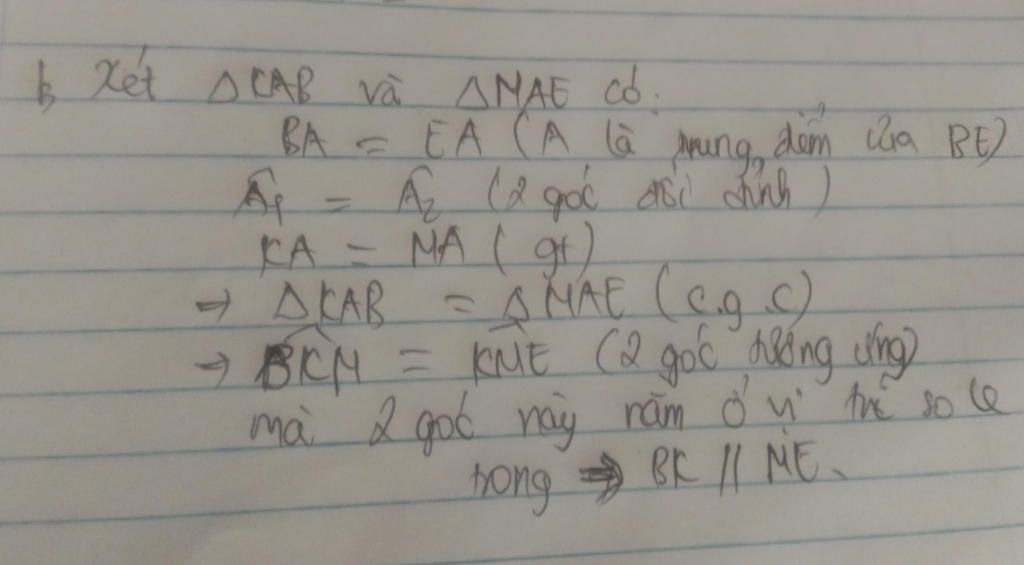 b, Xét ΔKAB và ΔMAE có:
BA = EA (A là trung điểm của BE)
Â₁ = Â₂ (2 góc đối đỉnh)
KA = MA (gt)
→ ΔKAB = ΔMAE (c.g.c)
→ BKM = KME (2 góc tương ứng)
mà 2 góc này nằm ở vị trí so le
trong ⇒ BK // ME.